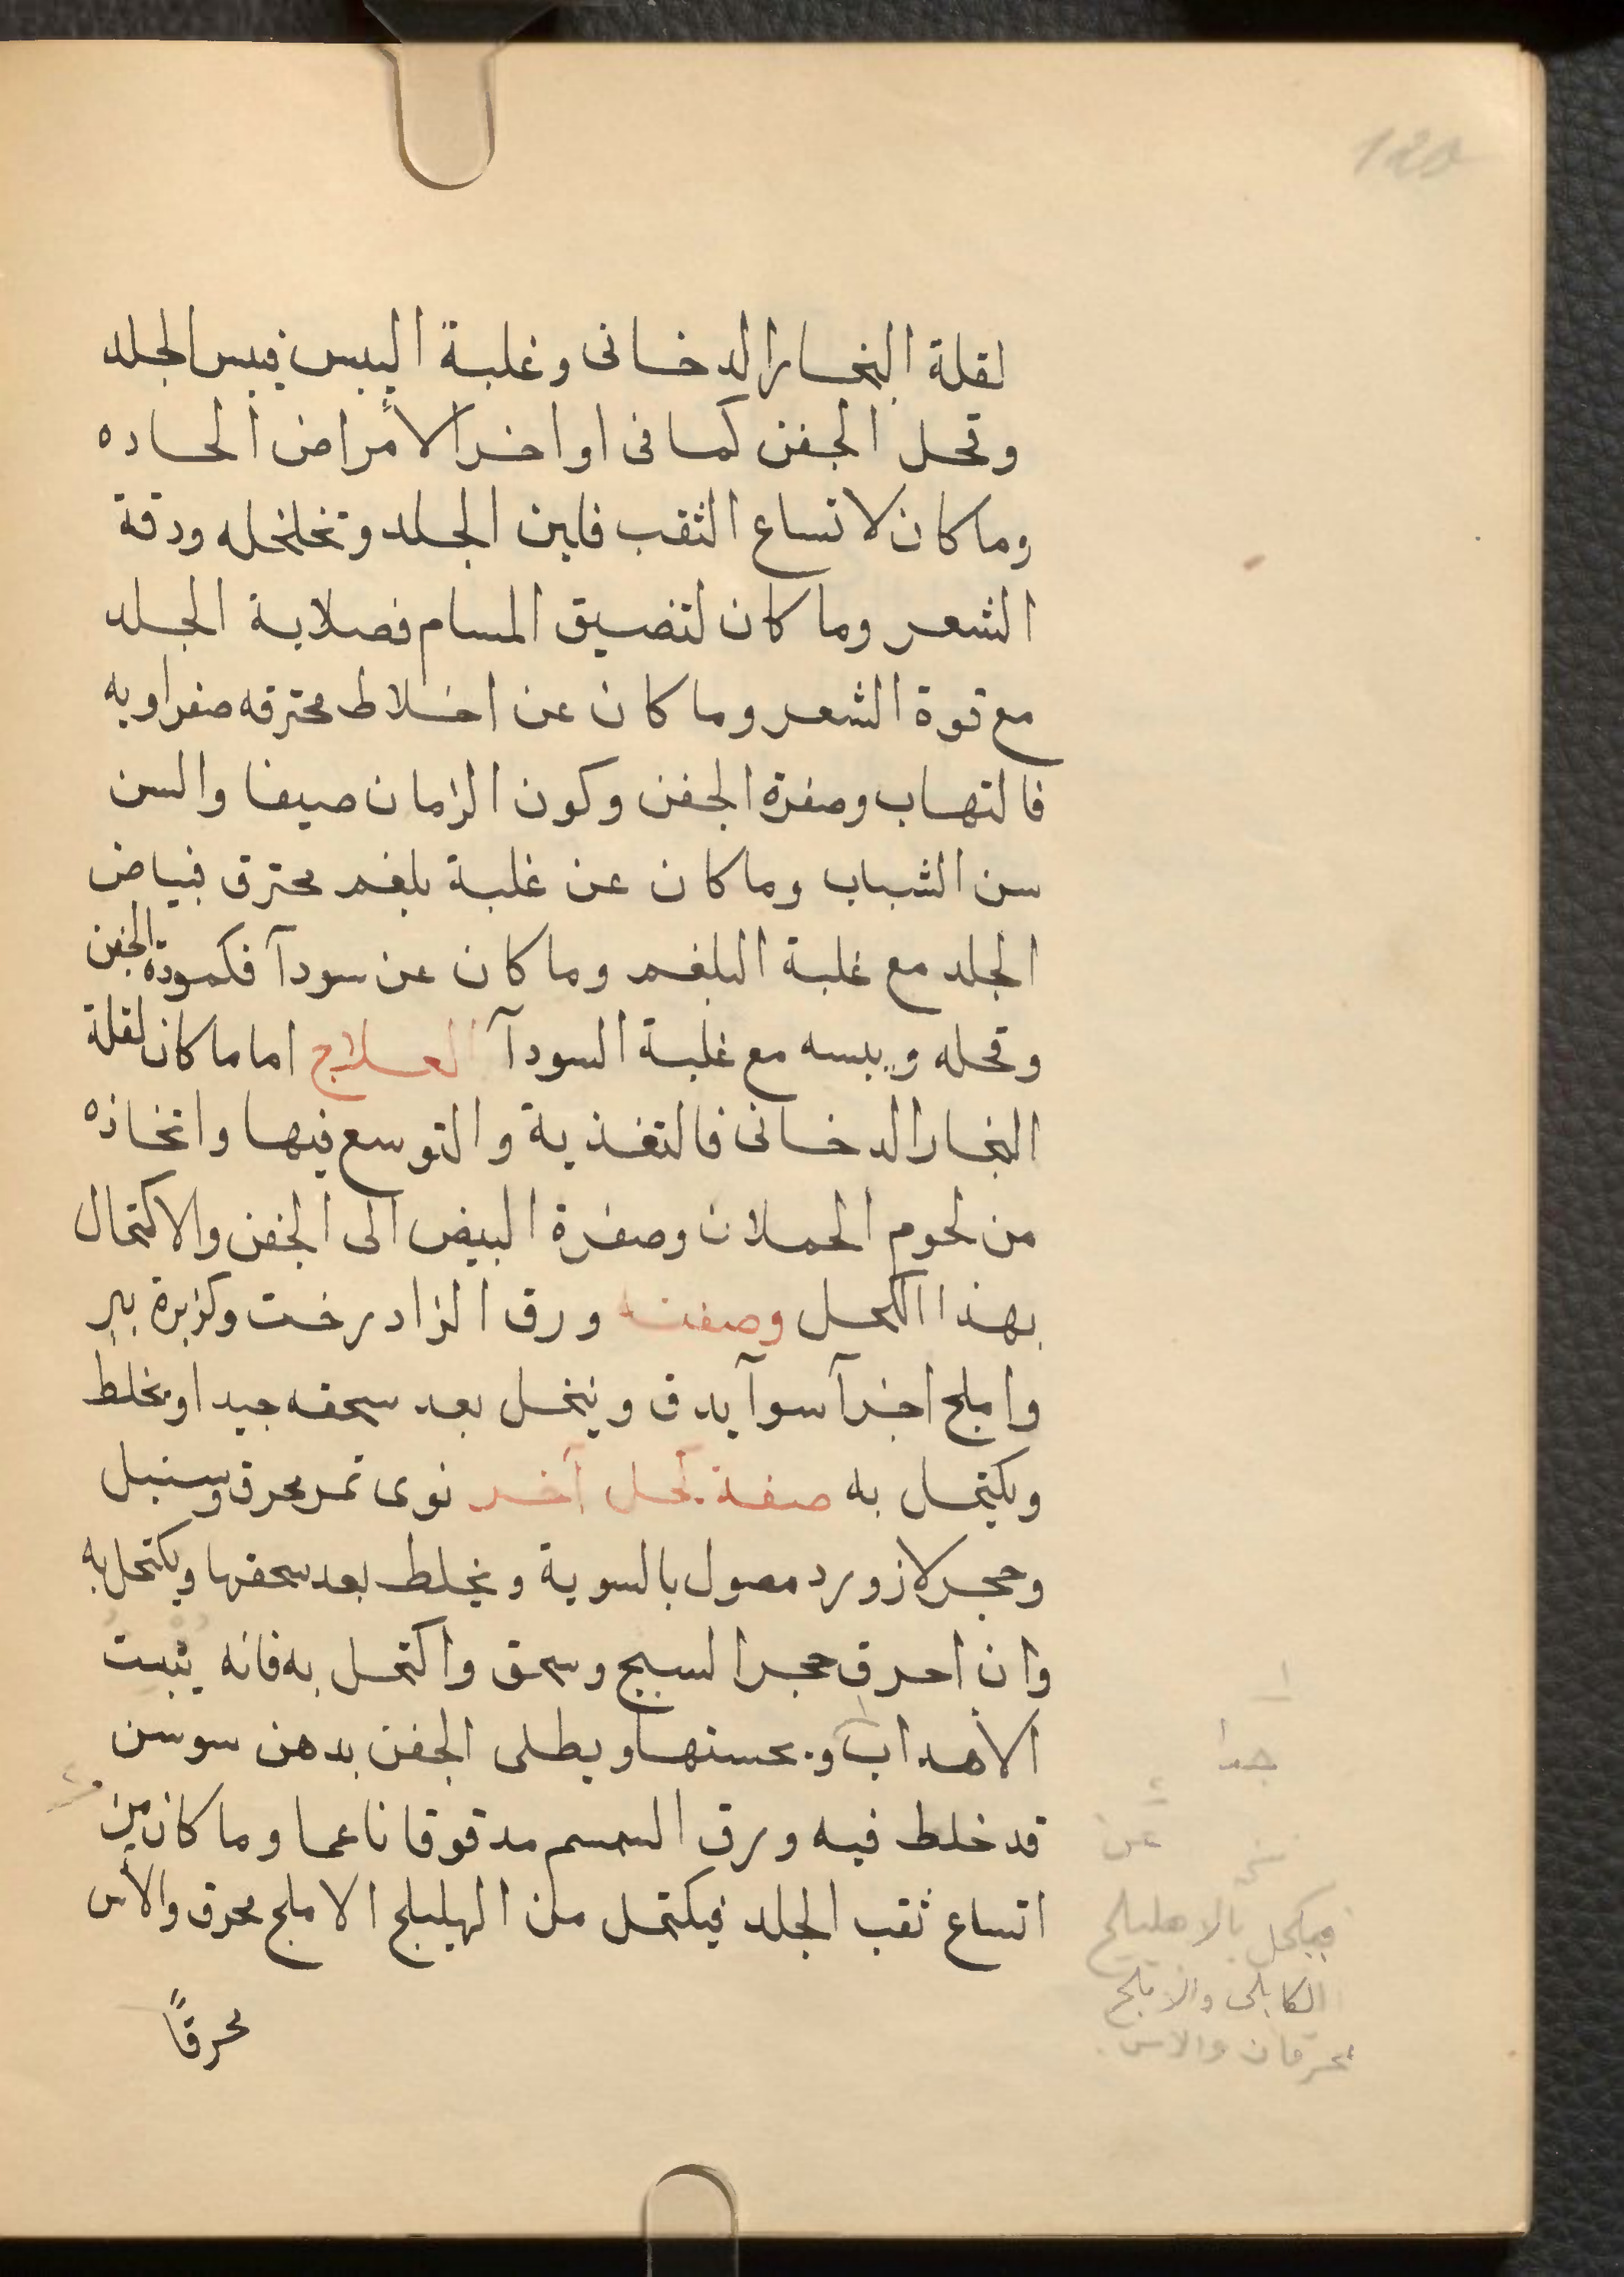 لقلة البخار الدخانى وغلبة اليبس فيبس الجلد
وقحل الجفن كما فى اواخر الأمراض الحاده
وما كان لاتساع الثقب فلين الجلد وتخلخله ودقة
الشعر وما كان لتضييق المسام فصلابة الجلد
مع قوة الشعر وما كان عن اخلاط محترقه صفراويه
فالتهاب وصفرة الجفن وكون الزمان صيفا والسن
سن الشباب وما كان عن غلبة بلغم محترق فبياض
الجلد مع غلبة البلغم وما كان عن سودآ فكمودة الجفن
وقحله ويبسه مع غلبة السودآ العلاج اما ما كان لقلة
البخار الدخانى فالتغذية والتوسع فيها واتخاذه
من لحوم الحملان وصفرة البيض الى الجفن والاكتحال
بهذا الكحل وصفته ورق الزادرخت وكزبرة بير
واملج اجزآ سوآ يدق وينخل بعد سحقه جيدا ويخلط
ويكتحل به صفة كحل آخر نوى تمر محرق وسنبل
وحجر لازورد مصول بالسوية ويخلط بعد سحقها ويكتحل به
وان احرق حجر السبج وسحق واكتحل به فانه ينبت
الأهداب ويحسنها ويطلى الجفن بدهن سوسن
قد خلط فيه ورق السمسم مدقوقا ناعما وما كان من
اتساع ثقب الجلد فيكتحل من الهليلج الاملج محرق والأس
محرقاً
جدا
عن
فيكحل بالاهليلج
الكابلى والاملج
محرقان والاس